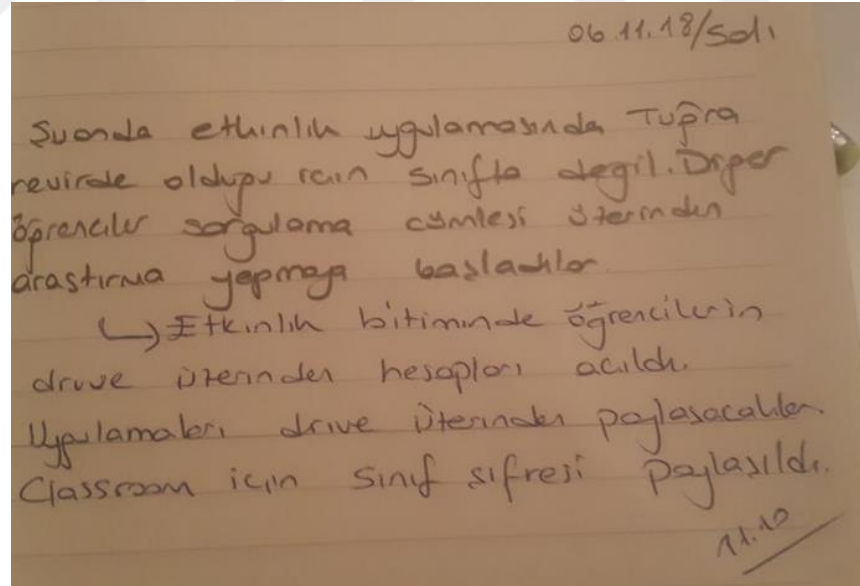 06.11.18/Salı
Şuanda etkinlik uygulamasında Tuğra
revirde olduğu için sınıfta degil. Diğer
öğrenciler sorgulama cümlesi üzerinden
araştırma yapmaya başladılar
↳ Etkinlik bitiminde öğrencilerin
drive üzerinden hesapları açıldı.
Uygulamaları drive üzerinden paylaşacaklar.
Classroom için sınıf şifresi paylaşıldı.
11.10